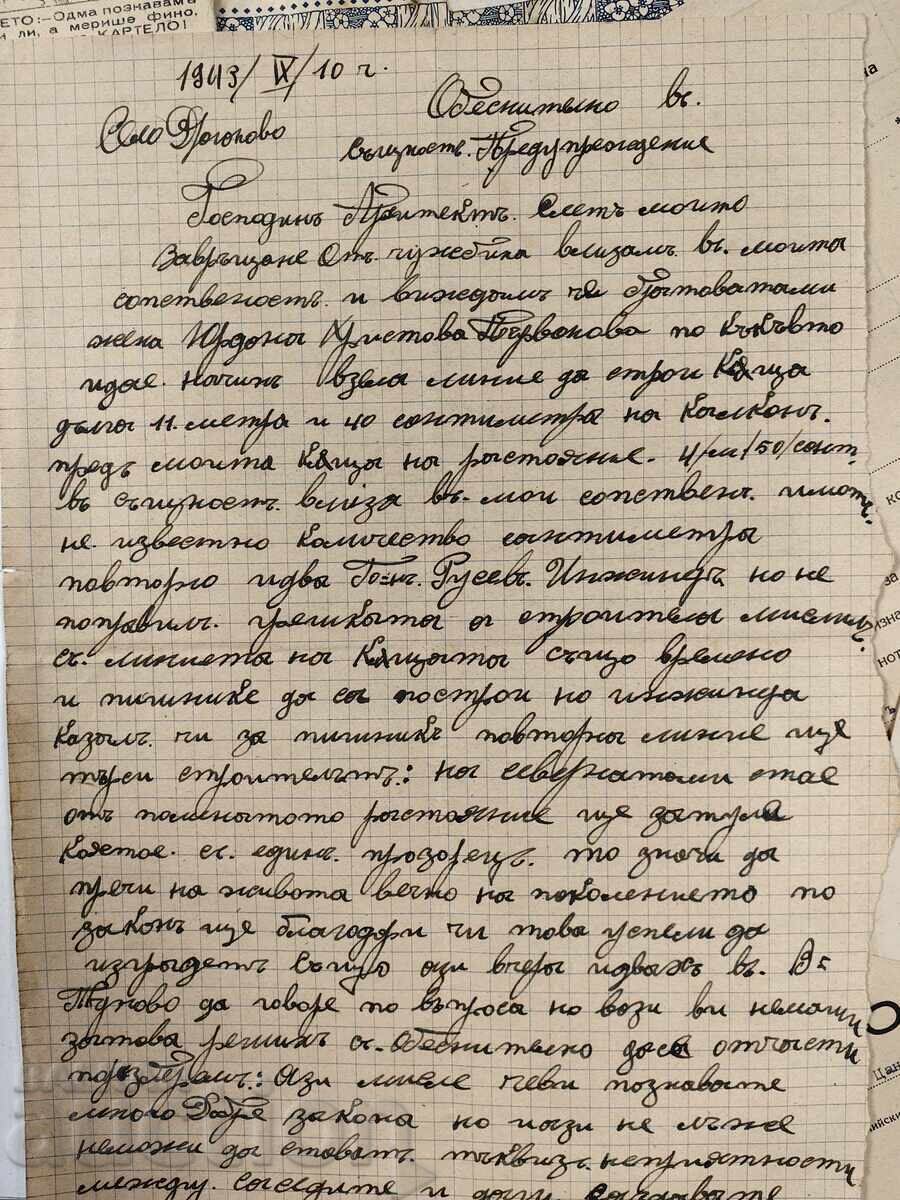 ЕТО:–Одма познавамъ
и ли, а мерише фино.
КАРТЕЛО!
1943/IX/10 г.
Обеснително въ.
Село Драгоново
същность. Предупреждение
Господинъ Архитектъ. Следъ моито
завръщане Отъ. чужбина влизамъ въ. моита
сопственость. и виждамъ че братоватами
жена Юрдона Христова Първанова по какъвто
идае. начинъ взела линие да строи Къща
дълга 11. метра и 40 сантиметра на Калканъ.
предъ моита Къща на растояние. 4/м/50/сант.
въ същность. влиза въ. мои сопствен. имотъ.
не. известно Количество сантиметра
повторно идва Го-нъ. Русевъ. Инжинеръ но не
поправилъ. грешката а строителя
съ. линиета на Къщата също времено
и пишнике да са построи но инжинера
казалъ. чи за пишникъ повторна линие ще
търси строительтъ: на севернатами стае
отъ поменатото растояние ще затули
Коятое. съ. единъ. прозорецъ. то значи да
пречи на живота вечно на поколението по
законъ ще благодари чи това успели да
изградетъ също ази вчера идвахъ въ. В=
Търново да говоре по въпроса но вази ви немаши
затова решихъ съ. обеснително даса отчасти
празберемъ: Ази мисле чеви познавате
много Добре закона но иази не лъже
неможи да ставатъ. такъвизъ. неприятности
между. соседите и
ка
за
изна
нот
ъ
Цан
ийски